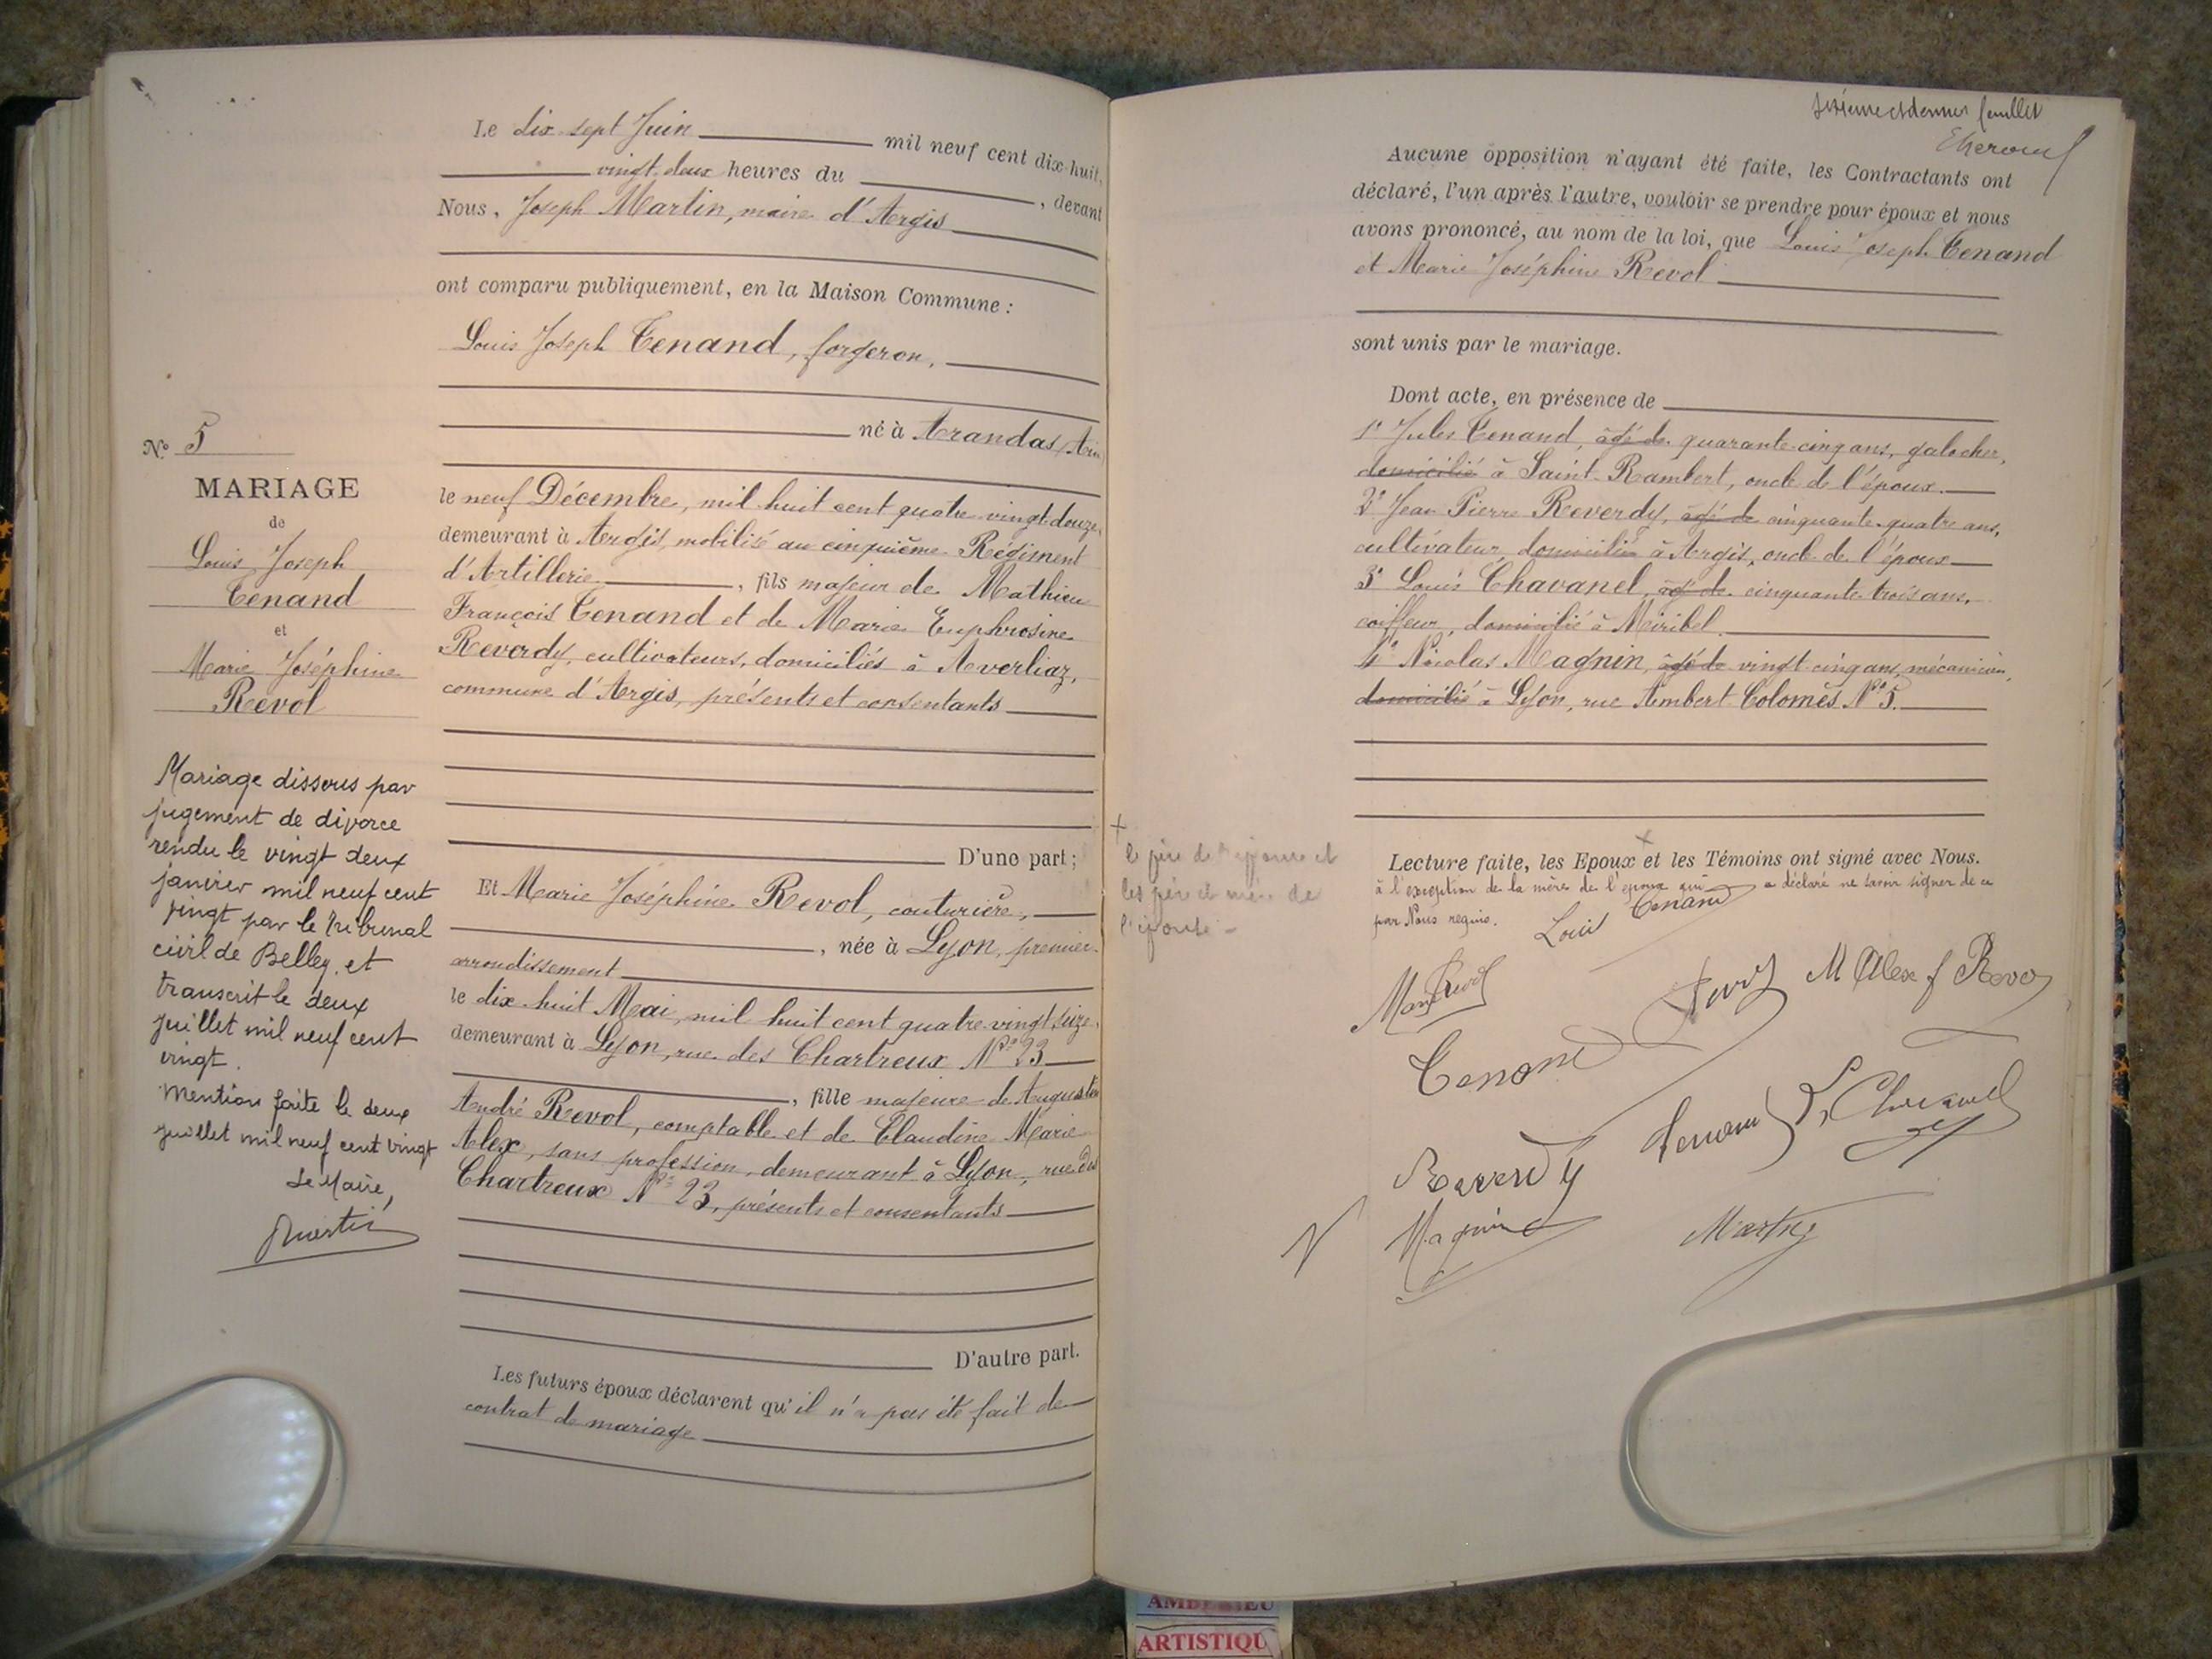 Le dix-sept Juin mil neuf cent dix-huit,
vingt-deux heures du , devant
Nous, Joseph Martin, maire d'Argis
ont comparu publiquement, en la Maison Commune :
Louis Joseph Tenand, forgeron,
né à Arandas (Ain)
le neuf Décembre, mil huit cent quatre vingt douze,
demeurant à Argis, mobilisé au cinquième Régiment
d'Artillerie , fils majeur de Mathieu
François Tenand et de Marie Euphrosine
Reverdy, cultivateurs, domiciliés à Averliaz,
commune d'Argis, présents et consentants
D'une part ;
Et Marie Joséphine Revol, couturière,
, née à Lyon, premier
arrondissement
le dix-huit Mai, mil huit cent quatre-vingt seize,
demeurant à Lyon, rue des Chartreux N° 23
, fille majeure de Augustin
André Revol, comptable et de Claudine Marie
Alex, sans profession, demeurant à Lyon, rue des
Chartreux N° 23, présents et consentants
D'autre part.
Les futurs époux déclarent qu'il n'a pas été fait de
contrat de mariage
N° 5
MARIAGE
de
Louis Joseph
Tenand
et
Marie Joséphine
Revol
Mariage dissous par
jugement de divorce
rendu le vingt deux
janvier mil neuf cent
vingt par le tribunal
civil de Belley, et
transcrit le deux
juillet mil neuf cent
vingt.
Mention faite le deux
juillet mil neuf cent vingt
Le Maire,
Martin
et dernier feuillet
Aucune opposition n'ayant été faite, les Contractants ont
déclaré, l'un après l'autre, vouloir se prendre pour époux et nous
avons prononcé, au nom de la loi, que Louis Joseph Tenand
et Marie Joséphine Revol
sont unis par le mariage.
Dont acte, en présence de
1° Jules Tenand, âgé de quarante-cinq ans, galocher,
domicilié à Saint-Rambert, oncle de l'époux.
2° Jean Pierre Reverdy, âgé de cinquante-quatre ans,
cultivateur, domicilié à Argis, oncle de l'époux
3° Louis Chavanel, âgé de cinquante-trois ans,
coiffeur, domicilié à Miribel
4° Nicolas Magnin, âgé de vingt-cinq ans, mécanicien,
domicilié à Lyon, rue Imbert Colomès N° 5.
+
le père de l'époux et
les père et mère de
l'épouse -
+
Lecture faite, les Epoux et les Témoins ont signé avec Nous.
à l'exception de la mère de l'époux qui a déclaré ne savoir signer de ce
par Nous requis.
Louis Tenand
Revol M Alex f Revol
Tenand
Tenand L. Chavanel
Reverdy
Magnin Martin
ARTISTIQU